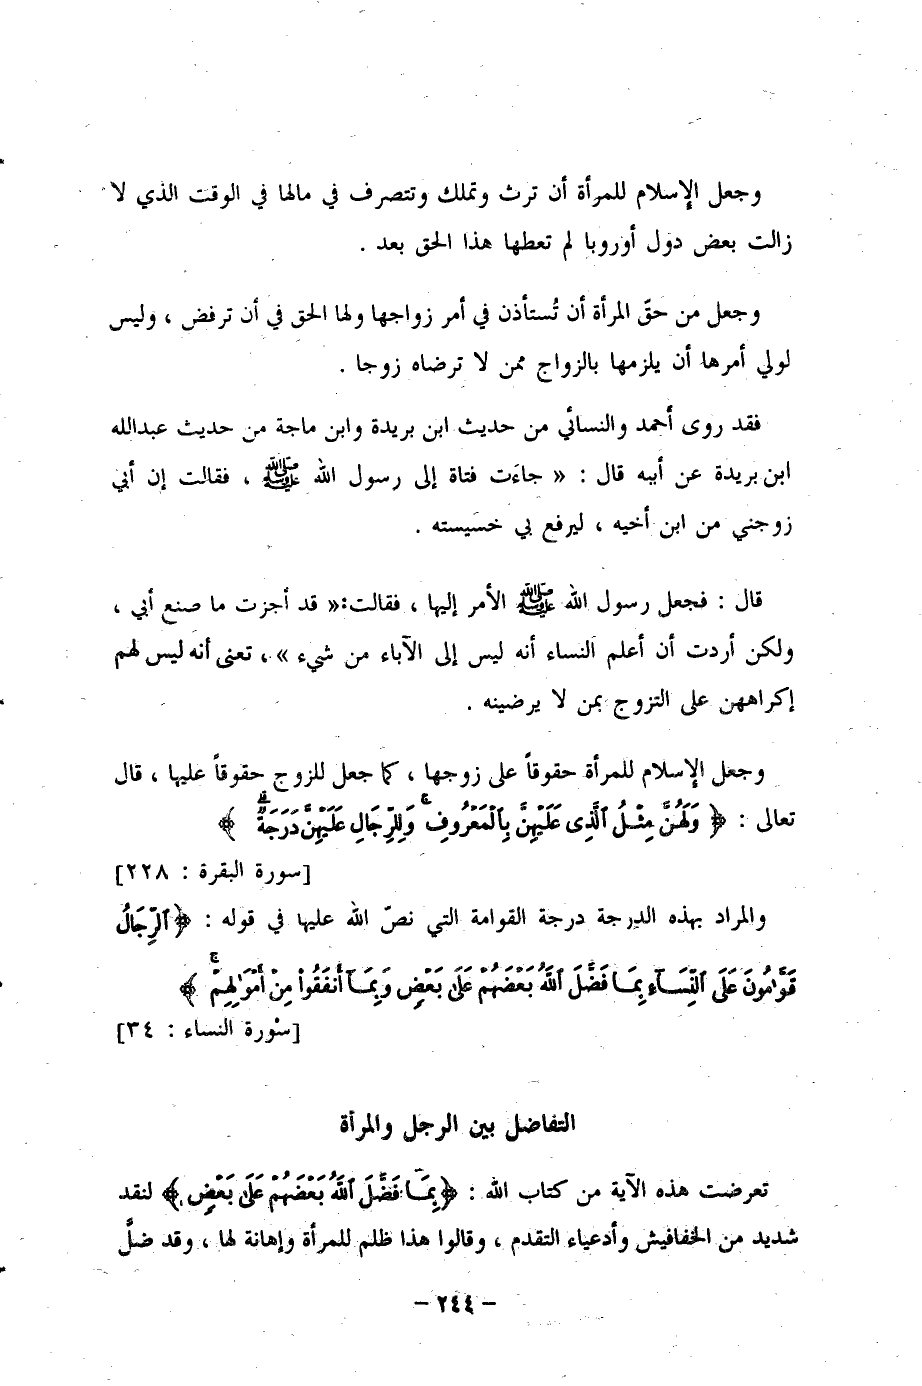 وجعل الإسلام للمرأة أن ترث وتملك وتتصرف في مالها في الوقت الذي لا
زالت بعض دول أوروبا لم تعطها هذا الحق بعد .
وجعل من حقّ المرأة أن تُستأذن في أمر زواجها ولها الحق في أن ترفض ، وليس
لولي أمرها أن يلزمها بالزواج ممن لا ترضاه زوجا .
فقد روى أحمد والنسائي من حديث ابن بريدة وابن ماجة من حديث عبدالله
ابن بريدة عن أبيه قال : « جاءَت فتاة إلى رسول الله ﷺ ، فقالت إن أبي
زوجني من ابن أخيه ، ليرفع بي خسيسته .
قال : فجعل رسول الله ﷺ الأمر إليها ، فقالت:« قد أجزت ما صنع أبي ،
ولكن أردت أن أعلم النساء أنه ليس إلى الآباء من شيء » ، تعنى أنه ليس لهم
إكراههن على التزوج بمن لا يرضينه .
وجعل الإسلام للمرأة حقوقاً على زوجها ، كما جعل للزوج حقوقاً عليها ، قال
تعالى : ﴿ وَلَهُنَّ مِثْلُ ٱلَّذِى عَلَيْهِنَّ بِٱلْمَعْرُوفِ ۚ وَلِلرِّجَالِ عَلَيْهِنَّ دَرَجَةٌ ۗ ﴾
[سورة البقرة : ٢٢٨]
والمراد بهذه الدرجة درجة القوامة التي نصّ الله عليها في قوله : ﴿ ٱلرِّجَالُ
قَوَّٰمُونَ عَلَى ٱلنِّسَآءِ بِمَا فَضَّلَ ٱللَّهُ بَعْضَهُمْ عَلَىٰ بَعْضٍ وَبِمَآ أَنفَقُوا۟ مِنْ أَمْوَٰلِهِمْ ۚ ﴾
[سورة النساء : ٣٤]
التفاضل بين الرجل والمرأة
تعرضت هذه الآية من كتاب الله : ﴿ بِمَا فَضَّلَ ٱللَّهُ بَعْضَهُمْ عَلَىٰ بَعْضٍ ﴾ لنقد
شديد من الخفافيش وأدعياء التقدم ، وقالوا هذا ظلم للمرأة وإهانة لها ، وقد ضلَّ
– ٢٤٤ –